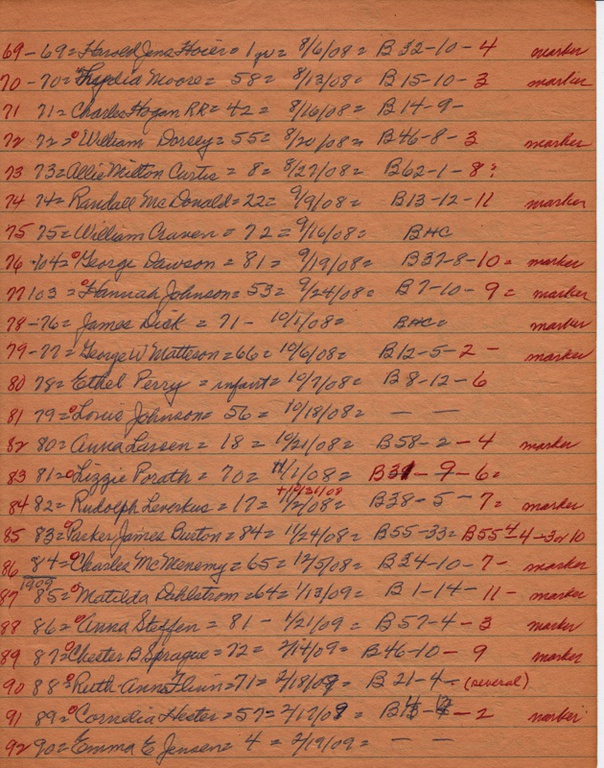 69 - 69 = Harold Jens Hoier = 1 yr = 8/6/08 = B 32-10-4 marker
70 - 70 = Lydia Moore = 58 = 8/13/08 = B 15-10-3 marker
71 71 = Charles Hogan RR = 42 = 8/16/08 = B 14-9-
72 72 = William Dorsey = 55 = 8/20/08 = B46-8-3 marker
73 73 = Allie Milton Curtis = 8 = 8/27/08 = B62-1-8?
74 74 = Randall McDonald = 22 = 9/9/08 = B13-12-11 marker
75 75 = William Craven = 72 = 9/16/08 = BHC
76 - 104 = George Dawson = 81 = 9/19/08 = B37-8-10 = marker
77 103 = Hannah Johnson = 53 = 9/24/08 = B7-10-9 = marker
78 - 76 = James Dick = 71 - 10/1/08 = BHC =
79 - 77 = George W Matteson = 66 = 10/6/08 = B12-5-2 - marker
80 78 = Ethel Perry = infant = 10/7/08 = B8-12-6
81 79 = Louis Johnson = 56 = 10/18/08 = — —
82 80 = Anna Larsen = 18 = 10/21/08 = B58-2-4 marker
83 81 = Lizzie Porath = 70 = 11/1/08 = B31-9-6 =
+ 10/31/08
84 82 = Rudolph Leverkus = 17 = 11/2/08 = B38-5-7 = marker
85 83 = Parker James Burton = 84 = 11/24/08 = B55-33 = B55-4-3 or 10
86 84 = Charles McMenemy = 65 = 12/5/08 = B34-10-7 - marker
1909
87 85 = Matilda Dahlstrom = 64 = 1/13/09 = B1-14-11 - marker
88 86 = Anna Steffen = 81 - 1/21/09 = B57-4-3 marker
89 87 = Chester B Sprague = 72 = 2/14/09 = B46-10-9 marker
90 88 = Ruth Ann Flinn = 71 = 2/18/09 = B21-4- (several)
91 89 = Cornelia Hester = 57 = 2/17/09 = -2 marker
92 90 = Emma E Jensen = 4 = 2/19/09 = — —